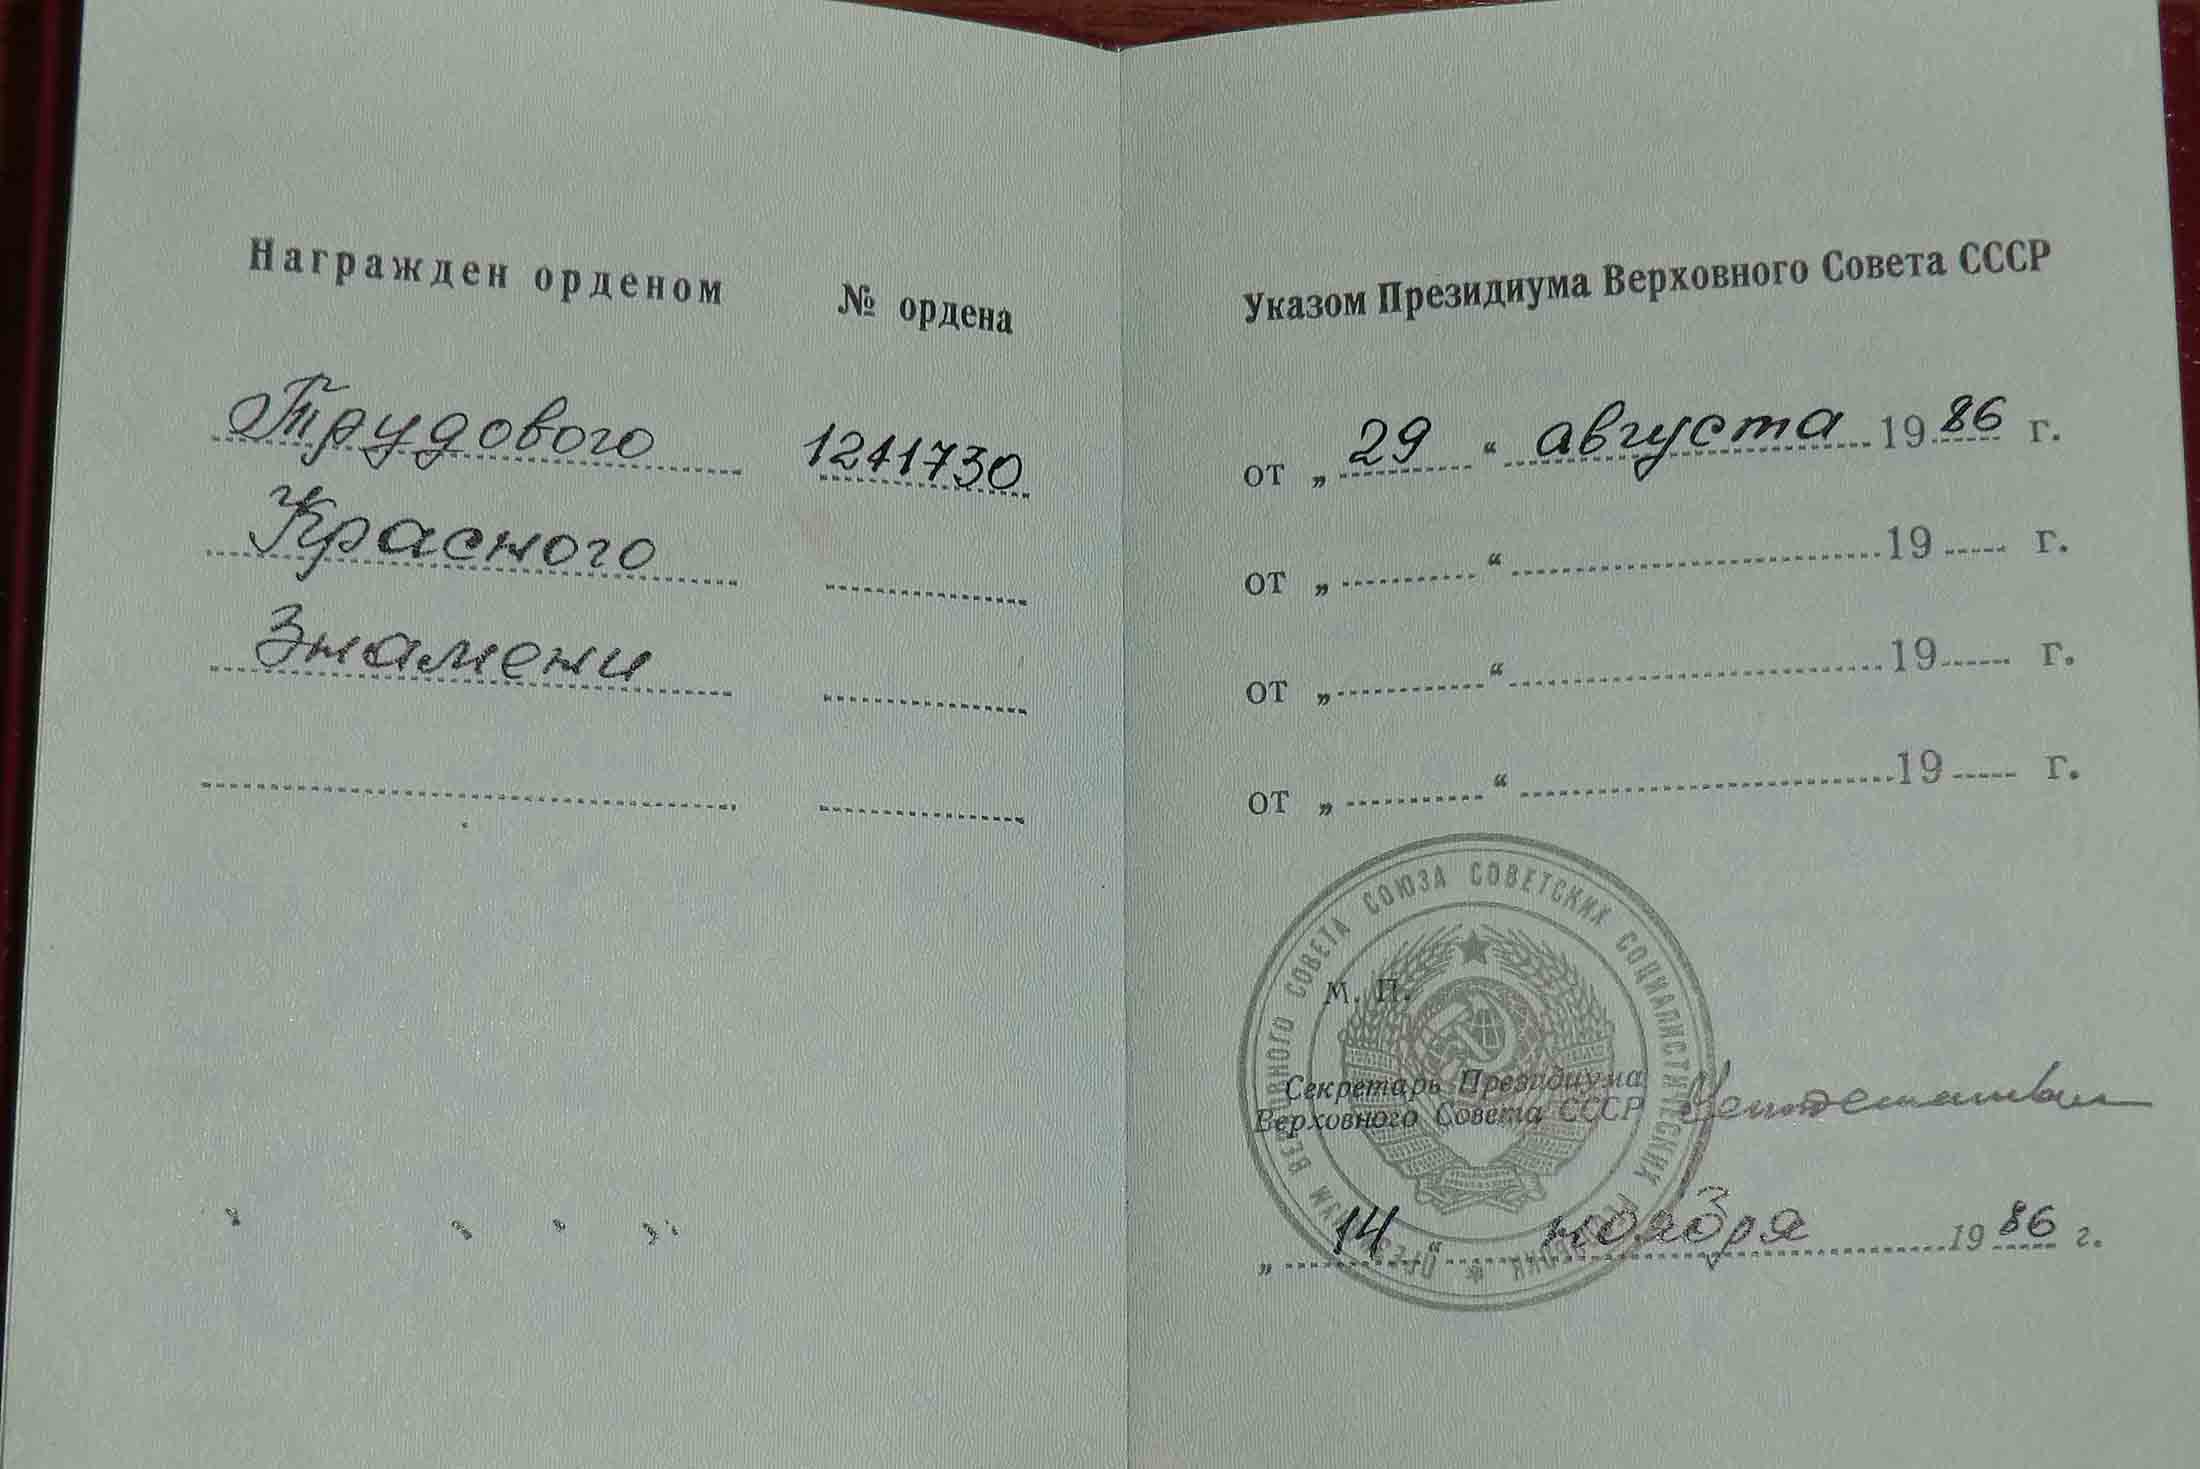 Награжден орденом № ордена
Трудового 1241730
Красного
Знамени
Указом Президиума Верховного Совета СССР
от „ 29 “ августа 19 86 г.
от „ “ 19 г.
от „ “ 19 г.
от „ “ 19 г.
ПРЕЗИДИУМ ВЕРХОВНОГО СОВЕТА СОЮЗА СОВЕТСКИХ СОЦИАЛИСТИЧЕСКИХ РЕСПУБЛИК
М. П.
Секретарь Президиума
Верховного Совета СССР
„ 14 “ ноября 19 86 г.